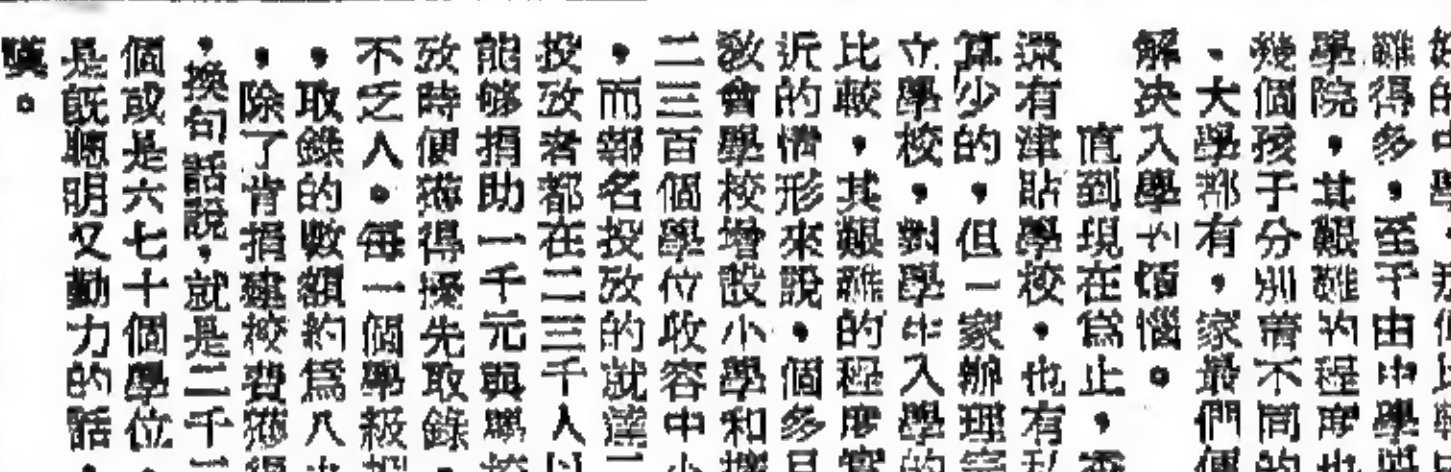 的中學
難得多，至于由中學
學院，其艱難的程度也
幾個孩子分別嘗不同的
、大學都有，家最們便
解决入學的煩惱。
直到現在爲止，香
還有津貼學校，也有私
算少的，但一家辦理完
立學校，對學生入學的
比較，其艱難的程度實
近的情形來說，個多月
敎會學校增設小學和
二三百個學位收容中小
，而報名投攷的就達二
投攷者都在二三千人以
能够捐助一千元與學校
攷時便獲得優先取錄，
不乏人。每一個學級
，取錄的數額約爲八
，除了肯捐建校費獲得
，換句話說，就是二千
個或是六七十個學位，
是旣聰明又勤力的話，
嘆。